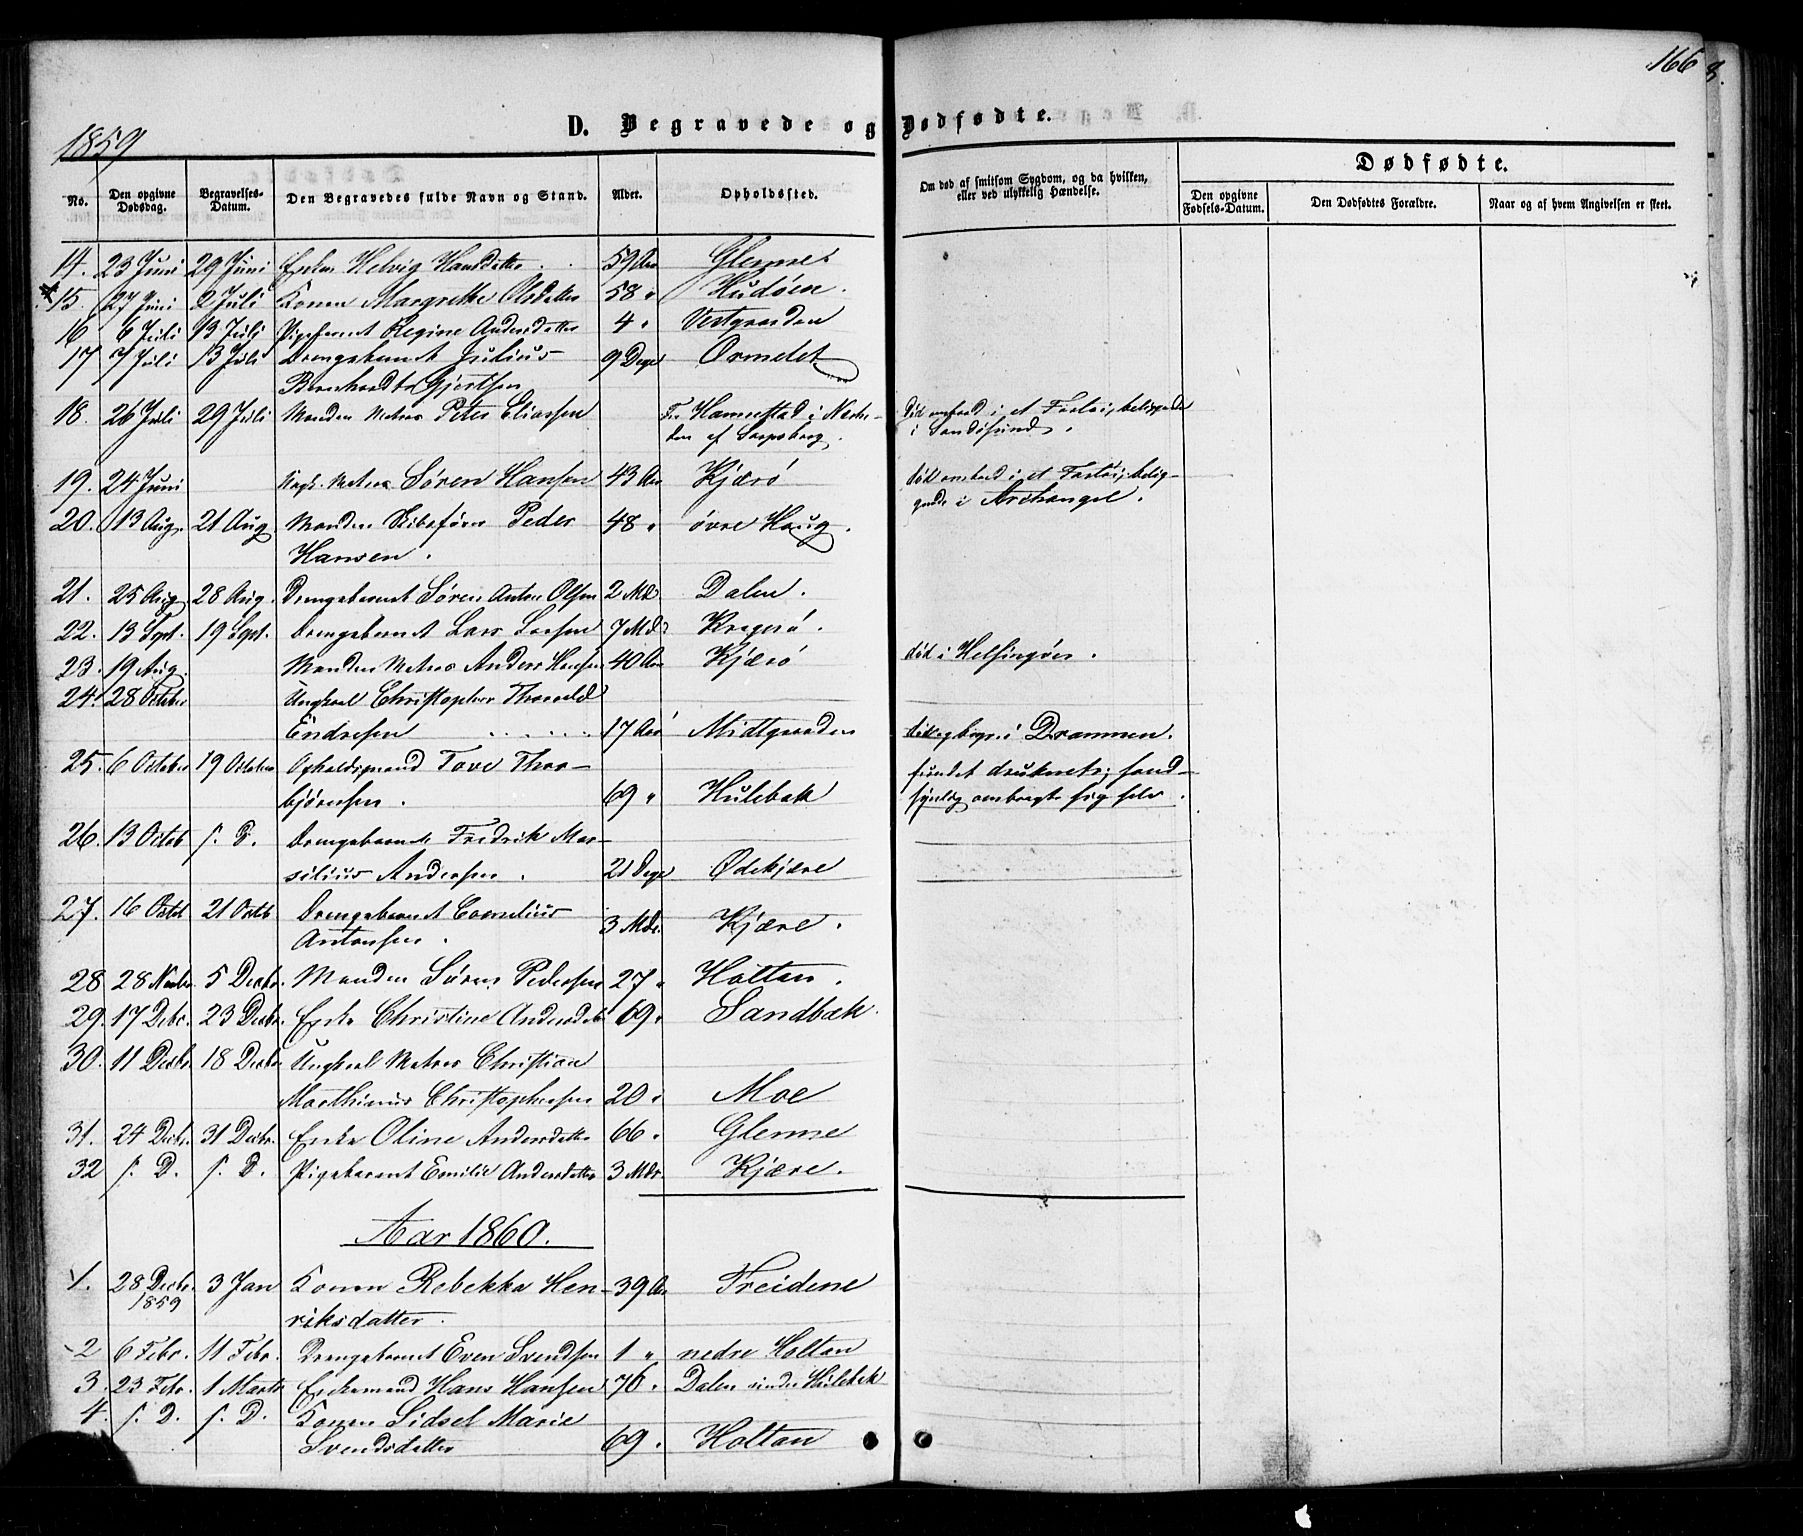 166
8.
1859
D. Begravede og Dødfødte.
No.
Den opgivne Dødsdag.
Begravelses-Datum.
Den Begravedes fulde Navn og Stand.
Alder.
Opholdssted.
Om død af smitsom Sygdom, og da hvilken, eller ved ulykkelig Hændelse.
Dødfødte.
Den opgivne Fødsels-Datum.
Den Dødfødtes Forældre.
Naar og af hvem Angivelsen er skeet.
14. 23 Juni 29 Juni Enken Helvig Hansdatter 59 Aar Glenne
15. 27 Juni 2 Juli Konen Margrethe Olsdatter 58 " Hudøen.
16 6 Juli 13 Juli Pigebarnet Regine Andersdatter 4 " Vestgaarden
17 7 Juli 13 Juli Drengebarnet Julius 9 Dage Ormelet
Bernhardt Gjertsen
18. 26 Juli 29 Juli Manden Matros Peter Eliassen Fra Hannestad i Nærhe- død ombord i et Fartøi, beliggende
den af Sarpsborg. i Sandøsund.
19. 24 Juni Ungk. Matros Søren Hansen 43 Aar Kjærø død ombord i et Fartøi, belig-
gende i Archangel.
20. 13 Aug. 21 Aug Manden Skibsfører Peder 48 " øvre Haug.
Hansen.
21. 25 Aug 28 Aug. Drengebarnet Søren Anton Olsen 2 Md. Dalen.
22. 13 Sept. 19 Sept. Drengebarnet Lars Larsen 7 Md. Kragerø.
23. 19 Aug. Manden Matros Anders Hansen 40 Aar Kjærø død i Helsingøer.
24. 28 October Ungkarl Christopher Thorvald
Endresen 17 Aar Midtgaarden død og begr. i Drammen.
25. 6 October 19 October Opholdsmand Tove Thor- fundet druknet; sand-
bjørnsen. 69 " Hulebak synlig ombragt sig selv.
26. 13 Octob s. D. Drengebarnet Fredrik Mar-
silius Andersen. 21 Dage Ødekjære
27. 16 Octb 21 Octb Drengebarnet Cornelius
Antonsen. 3 Mdr. Kjære.
28 28 Novbr. 5 Decbr. Manden Søren Pedersen 27 " Holtan.
29. 17 Debr. 23 Decbr. Enke Christine Andersdatr 69 " Sandbæk.
30. 11 Decbr. 18 Decbr Ungkarl Matros Christian
Marthinus Christophersen 20 " Moe
31. 24 Decbr. 31 Decbr. Enke Oline Andersdatter 66 " Glenne
32 s. D. s. D. Pigebarnet Emilie Andersdatter 3 Mdr. Kjære.
Aar 1860.
1. 28 Decbr. 3 Jan Konen Rebekka Hen- 39 Aar Freidene
1859
riksdatter.
2 6 Febr. 11 Febr. Drengebarnet Even Svendsen 1 " nedre Holtan
3. 23 Febr. 1 Marts Enkemand Hans Hansen 76 " Dalen under Hulebak
4. s. D. s. D. Konen Sidsel Marie
Svendsdatter 69. Holtan